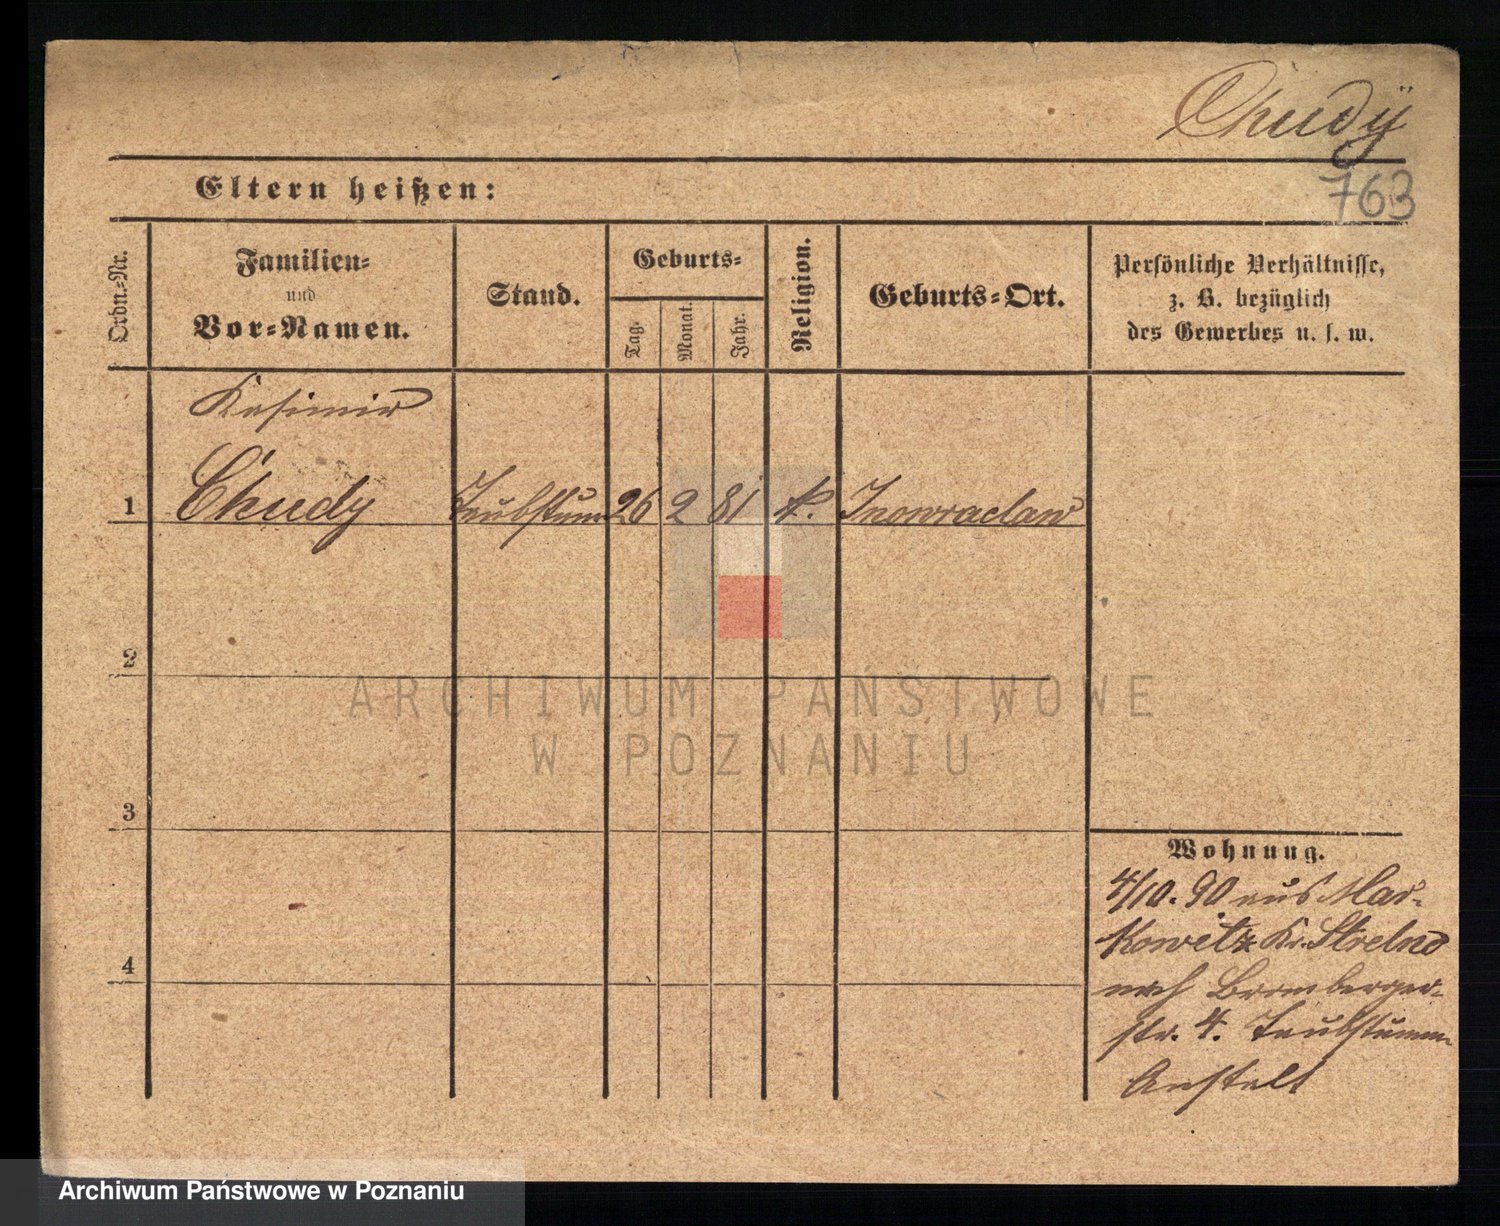 Chudÿ
763
Eltern heißen:
Ordn.-Nr.
Familien-
und
Vor-Namen.
Stand.
Geburts-
Tag.
Monat.
Jahr.
Religion.
Geburts-Ort.
Persönliche Verhältnisse,
z. B. bezüglich
des Gewerbes u. s. w.
Kasimir
1 Chudy Taubstumm 26 2 81 k. Inowraclaw
2
3
4
Wohnung.
4/10. 90 aus Mar-
kowitz Kr. Strelno
nach Bromberger-
str. 4. Taubstumm-
Anstalt
ARCHIWUM PAŃSTWOWE
W POZNANIU
Archiwum Państwowe w Poznaniu